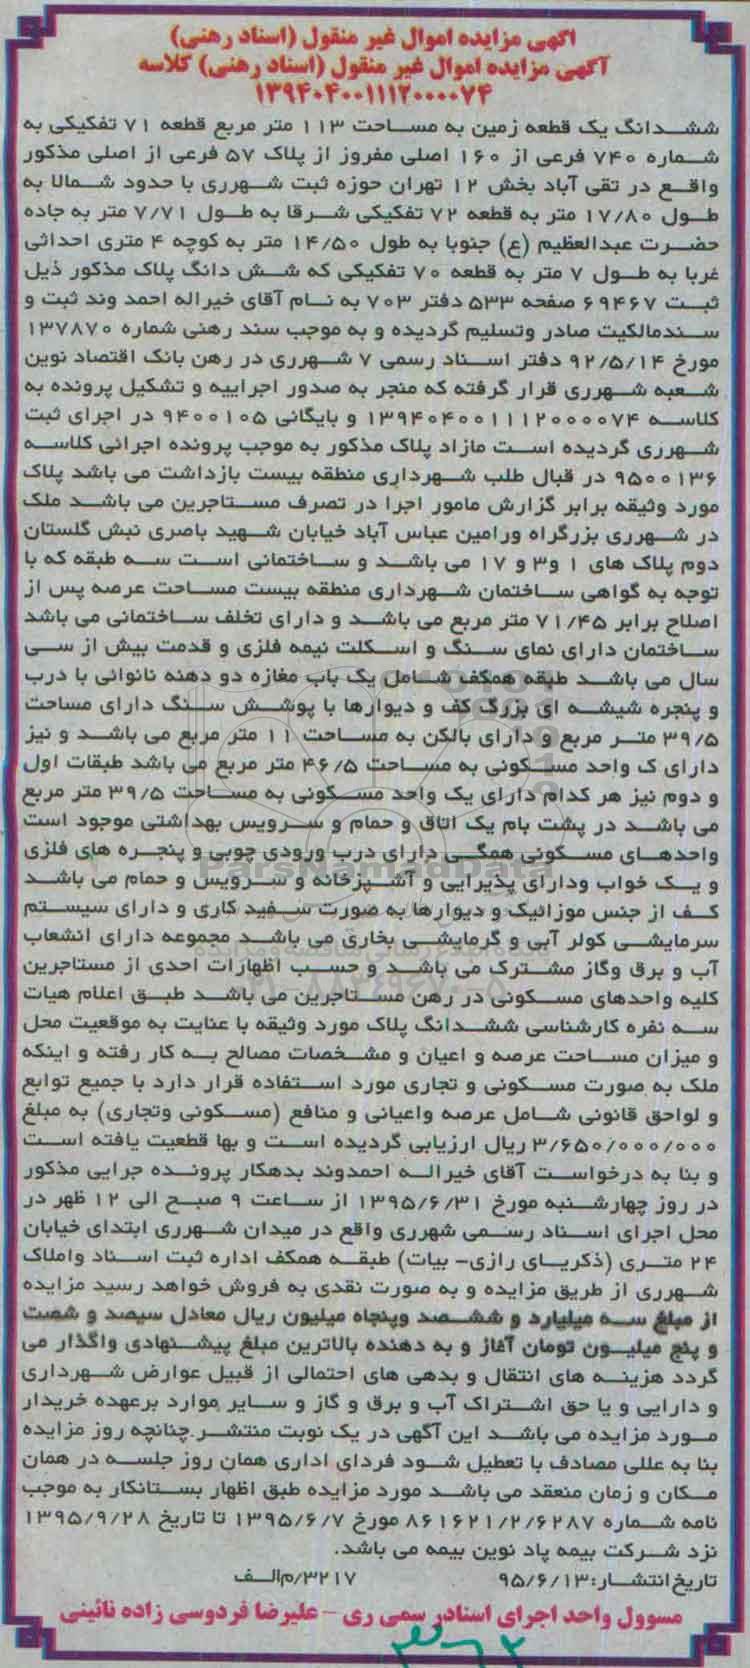 آگهی مزایده اموال غیر منقول (اسناد رهنی)
آگهی مزایده اموال غیر منقول (اسناد رهنی) کلاسه
۱۳۹۴۰۴۰۰۱۱۱۲۰۰۰۰۷۴
ششدانگ یک قطعه زمین به مساحت ۱۱۳ متر مربع قطعه ۷۱ تفکیکی به
شماره ۷۴۰ فرعی از ۱۶۰ اصلی مفروز از پلاک ۵۷ فرعی از اصلی مذکور
واقع در تقی آباد بخش ۱۲ تهران حوزه ثبت شهرری با حدود شمالا به
طول ۱۷/۸۰ متر به قطعه ۷۲ تفکیکی شرقا به طول ۷/۷۱ متر به جاده
حضرت عبدالعظیم (ع) جنوبا به طول ۱۴/۵۰ متر به کوچه ۴ متری احداثی
غربا به طول ۷ متر به قطعه ۷۰ تفکیکی که شش دانگ پلاک مذکور ذیل
ثبت ۶۹۴۶۷ صفحه ۵۳۳ دفتر ۷۰۳ به نام آقای خیراله احمد وند ثبت و
سندمالکیت صادر وتسلیم گردیده و به موجب سند رهنی شماره ۱۳۷۸۷۰
مورخ ۹۲/۵/۱۴ دفتر اسناد رسمی ۷ شهرری در رهن بانک اقتصاد نوین
شعبه شهرری قرار گرفته که منجر به صدور اجراییه و تشکیل پرونده به
کلاسه ۱۳۹۴۰۴۰۰۱۱۱۲۰۰۰۰۷۴ و بایگانی ۹۴۰۰۱۰۵ در اجرای ثبت
شهرری گردیده است مازاد پلاک مذکور به موجب پرونده اجرائی کلاسه
۹۵۰۰۱۳۶ در قبال طلب شهرداری منطقه بیست بازداشت می باشد پلاک
مورد وثیقه برابر گزارش مامور اجرا در تصرف مستاجرین می باشد ملک
در شهرری بزرگراه ورامین عباس آباد خیابان شهید باصری نبش گلستان
دوم پلاک های ۱ و۳ و ۱۷ می باشد و ساختمانی است سه طبقه که با
توجه به گواهی ساختمان شهرداری منطقه بیست مساحت عرصه پس از
اصلاح برابر ۷۱/۴۵ متر مربع می باشد و دارای تخلف ساختمانی می باشد
ساختمان دارای نمای سنگ و اسکلت نیمه فلزی و قدمت بیش از سی
سال می باشد طبقه همکف شامل یک باب مغازه دو دهنه نانوائی با درب
و پنجره شیشه ای بزرگ کف و دیوارها با پوشش سنگ دارای مساحت
۳۹/۵ متر مربع و دارای بالکن به مساحت ۱۱ متر مربع می باشد و نیز
دارای ک واحد مسکونی به مساحت ۴۶/۵ متر مربع می باشد طبقات اول
و دوم نیز هر کدام دارای یک واحد مسکونی به مساحت ۳۹/۵ متر مربع
می باشد در پشت بام یک اتاق و حمام و سرویس بهداشتی موجود است
واحدهای مسکونی همگی دارای درب ورودی چوبی و پنجره های فلزی
و یک خواب ودارای پذیرایی و آشپزخانه و سرویس و حمام می باشد
کف از جنس موزائیک و دیوارها به صورت سفید کاری و دارای سیستم
سرمایشی کولر آبی و گرمایشی بخاری می باشد مجموعه دارای انشعاب
آب و برق وگاز مشترک می باشد و حسب اظهارات احدی از مستاجرین
کلیه واحدهای مسکونی در رهن مستاجرین می باشد طبق اعلام هیات
سه نفره کارشناسی ششدانگ پلاک مورد وثیقه با عنایت به موقعیت محل
و میزان مساحت عرصه و اعیان و مشخصات مصالح به کار رفته و اینکه
ملک به صورت مسکونی و تجاری مورد استفاده قرار دارد با جمیع توابع
و لواحق قانونی شامل عرصه واعیانی و منافع (مسکونی وتجاری) به مبلغ
۳/۶۵۰/۰۰۰/۰۰۰ ریال ارزیابی گردیده است و بها قطعیت یافته است
و بنا به درخواست آقای خیراله احمدوند بدهکار پرونده جرایی مذکور
در روز چهارشنبه مورخ ۱۳۹۵/۶/۳۱ از ساعت ۹ صبح الی ۱۲ ظهر در
محل اجرای اسناد رسمی شهرری واقع در میدان شهرری ابتدای خیابان
۲۴ متری (ذکریای رازی- بیات) طبقه همکف اداره ثبت اسناد واملاک
شهرری از طریق مزایده و به صورت نقدی به فروش خواهد رسید مزایده
از مبلغ سه میلیارد و ششصد وپنجاه میلیون ریال معادل سیصد و شصت
و پنج میلیون تومان آغاز و به دهنده بالاترین مبلغ پیشنهادی واگذار می
گردد هزینه های انتقال و بدهی های احتمالی از قبیل عوارض شهرداری
و دارایی و یا حق اشتراک آب و برق و گاز و سایر موارد برعهده خریدار
مورد مزایده می باشد این آگهی در یک نوبت منتشر.چنانچه روز مزایده
بنا به عللی مصادف با تعطیل شود فردای اداری همان روز جلسه در همان
مکان و زمان منعقد می باشد مورد مزایده طبق اظهار بستانکار به موجب
نامه شماره ۸۶۱۶۲۱/۲/۶۲۸۷ مورخ ۱۳۹۵/۶/۷ تا تاریخ ۱۳۹۵/۹/۲۸
نزد شرکت بیمه پاد نوین بیمه می باشد.
تاریخ انتشار:۹۵/۶/۱۳ ۳۲۱۷/م/الف
مسوول واحد اجرای اسنادر سمی ری - علیرضا فردوسی زاده نائینی